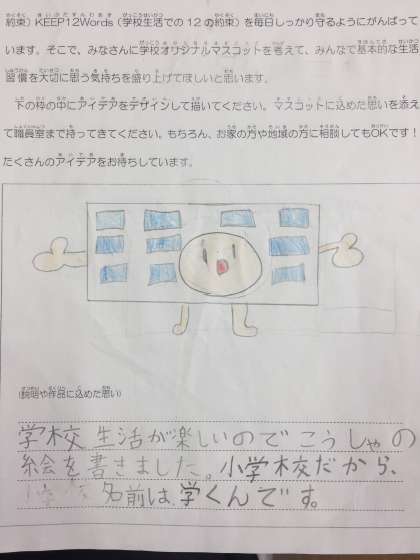 約束）KEEP12Words（学校生活での12の約束）を毎日しっかり守るようにがんばって
います。そこで、みなさんに学校オリジナルマスコットを考えて、みんなで基本的な生活
習慣を大切に思う気持ちを盛り上げてほしいと思います。
下の枠の中にアイデアをデザインして描いてください。マスコットに込めた思いを添え
て職員室まで持ってきてください。もちろん、お家の方や地域の方に相談してもOKです！
たくさんのアイデアをお待ちしています。
(説明や作品に込めた思い)
学校生活が楽しいのでこうしゃの
絵を書きました。小学校だから、
名前は、学くんです。